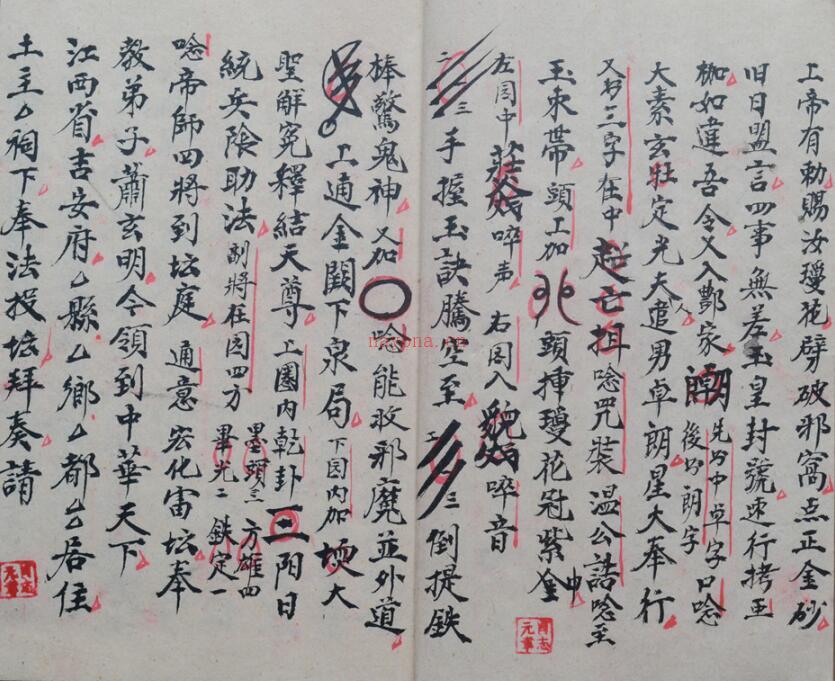 上帝有勅賜汝瓊花劈破邪窩点正金砂
旧日盟言四事無差玉皇封號速行拷玉
枷如違吾令又入酆家 後必朗字 先必中卓字口唸
大素玄牡定光夫追男卓朗星大奉行
又於三字在中 唸咒裝温公誥唸至
玉束帶頭上加 頭揷瓊花冠紫金中
左図中 啐声 右図入 啐音
二 三 手握玉訣騰空至 三 倒提鉄
棒驚鬼神又加〇唸能收邪魔並外道
上通金闕下泉局下図内加 大
聖解冤釋結天尊上圏内乾卦三陽日
統兵陰助法副將在図四方 墨頭三 方雄四 畢光二 鉄定一
唸帝師四將到坛庭通意宏化宙坛奉
教弟子蕭玄明今領到中華天下
江西省吉安府厶縣厶鄉厶都厶居住
土主厶祠下奉法投坛拜奏請
nayona.cn